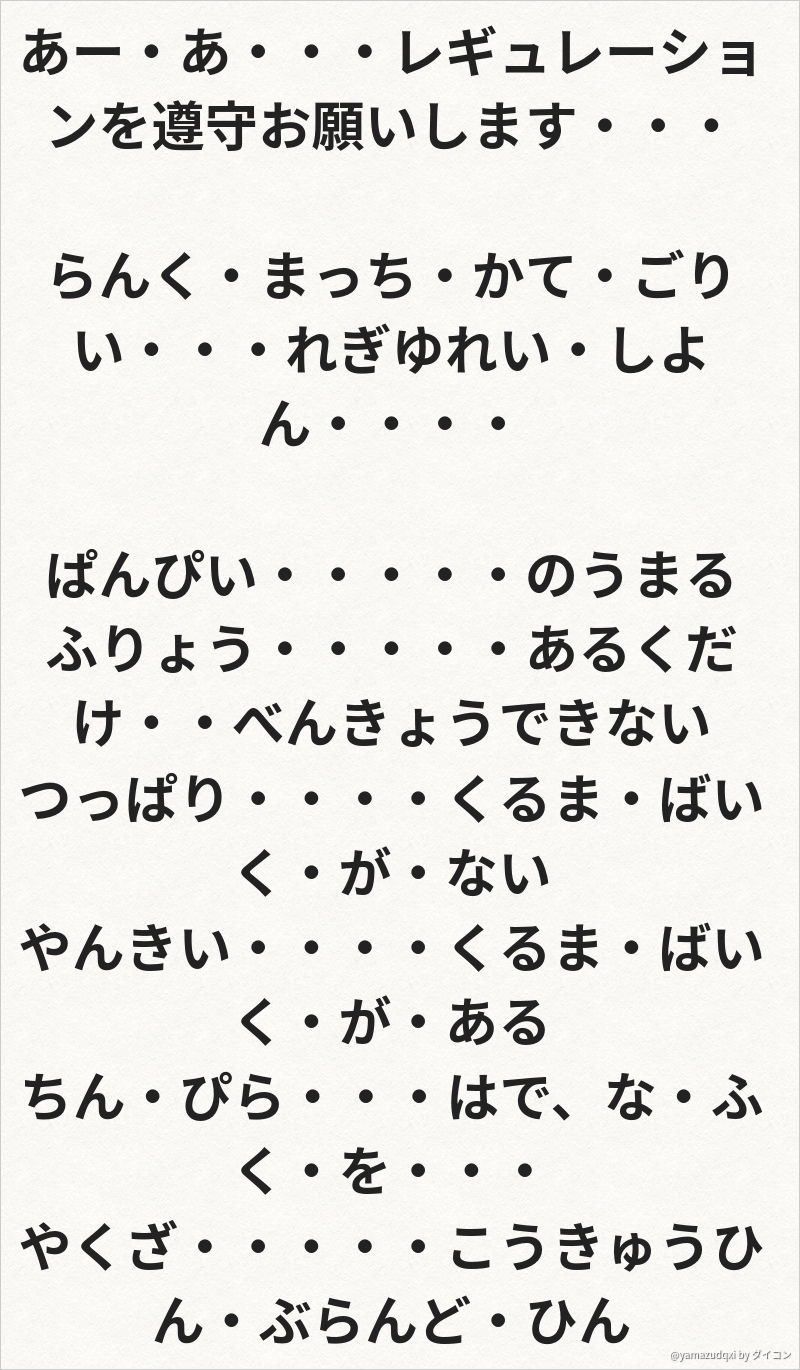 あー・あ・・・レギュレーショ
ンを遵守お願いします・・・
らんく・まっち・かて・ごり
い・・・れぎゆれい・しよ
ん・・・・
ぱんぴい・・・・・のうまる
ふりょう・・・・・あるくだ
け・・べんきょうできない
つっぱり・・・・くるま・ばい
く・が・ない
やんきい・・・・くるま・ばい
く・が・ある
ちん・ぴら・・・はで、な・ふ
く・を・・・
やくざ・・・・・こうきゅうひ
ん・ぶらんど・ひん
@yamazudqxi by ダイコン